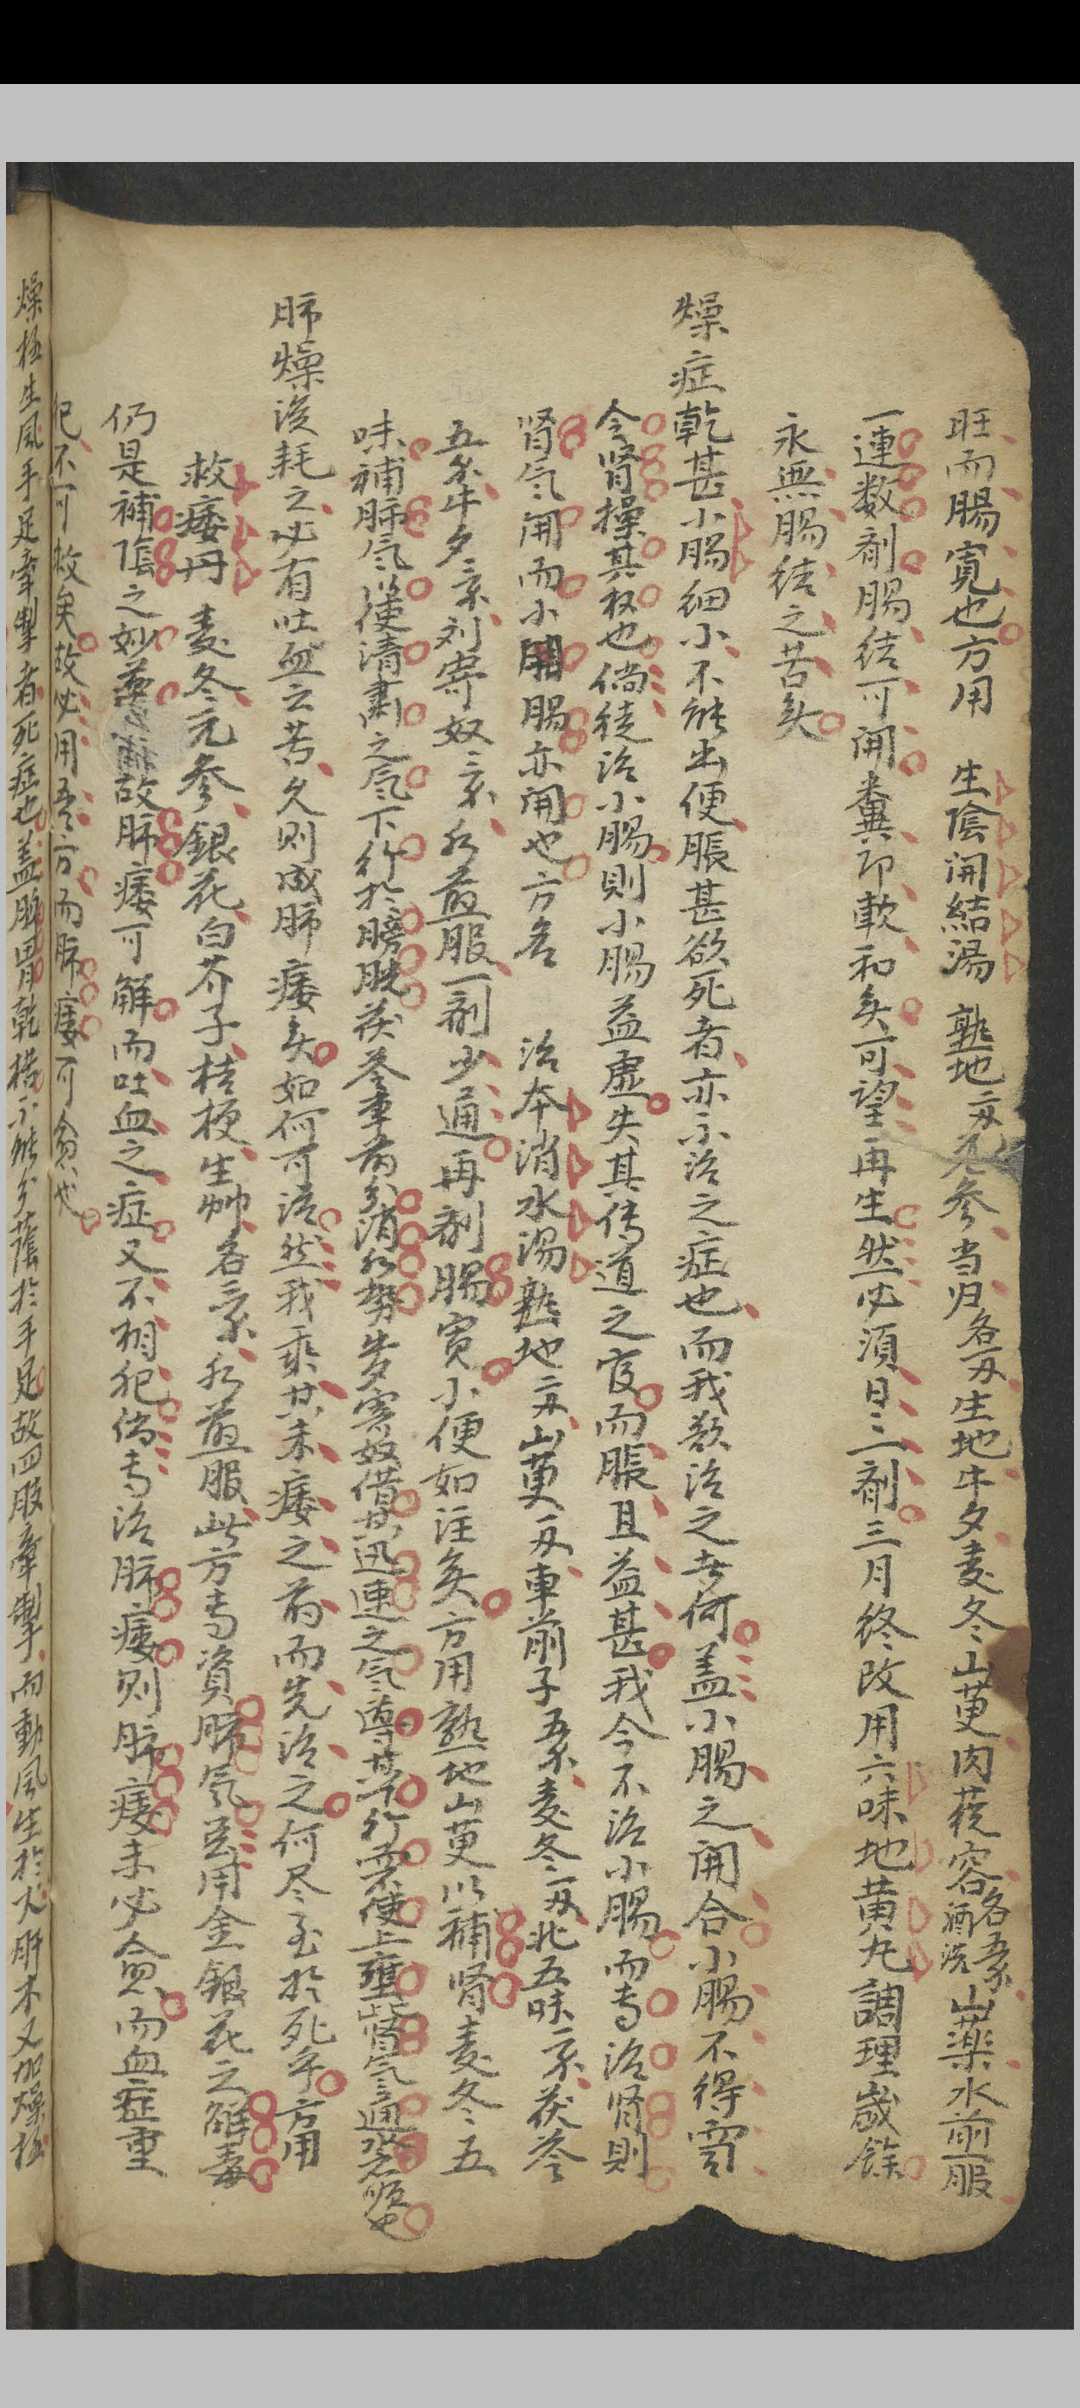 旺而腸寛也方用　生陰開結湯　熟地二両元参当归各両生地牛夕麦冬山茰肉蓯容各五錢酒洗山藥水煎服
一連数劑腸結可開糞即軟和矣可望再生然必須日日一劑三月終改用六味地黄丸調理歲餘
永無腸结之苦矣
燥症乾甚小腸细小不能出便脹甚欲死者亦不治之症也而我欲治之者何盖小腸之開合小腸不得
令腎操其权也倘徒治小腸則小腸益虚失其传道之官而脹且益甚我今不治小腸而专治腎則
腎气開而小腸亦開也方名　治本消水湯熟地二両山茰一両車前子五錢麦冬一両北五味二錢茯苓
五錢牛夕三錢刘寄奴三錢水煎服一劑少通再劑腸寛小便如注矣方用熟地山茰以補腎麦冬五
味補肺气以使清肅之气下行於膀胱茯苓車前分消水勢牛夕寄奴借其迅速之气導其下行無使上壅腎气通
肺燥液耗之必有吐血之苦久则成肺痿矣如何可治然我乘其未痿之前而先治之何尽至於死乎方用
救痿丹　麦冬元参銀花白芥子桔梗生艸各三錢水煎服此方专資肺气至用金銀花之解毒
仍是補陰之妙薬故肺痿可解而吐血之症又不相犯倘专治肺痿则肺痿未必愈而血症重
犯不可救矣故必用吾方而肺痿可愈也
燥極生風手足牽掣者死症也盖脾胃乾槁不能分蔭於手足故四肢牽掣而動風生於火肝木又加燥極